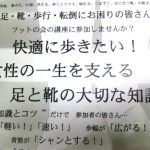 足・靴・歩行・転倒にお困りの皆さん
フットの会の講座に参加しませんか?
快適に歩きたい!
女性の一生を支える
足と靴の大切な知識
知識とコツ”だけで 参加者の皆さん…
「軽い!」「速い!」 歩幅が「広がる!
背筋が「シャンとする!」